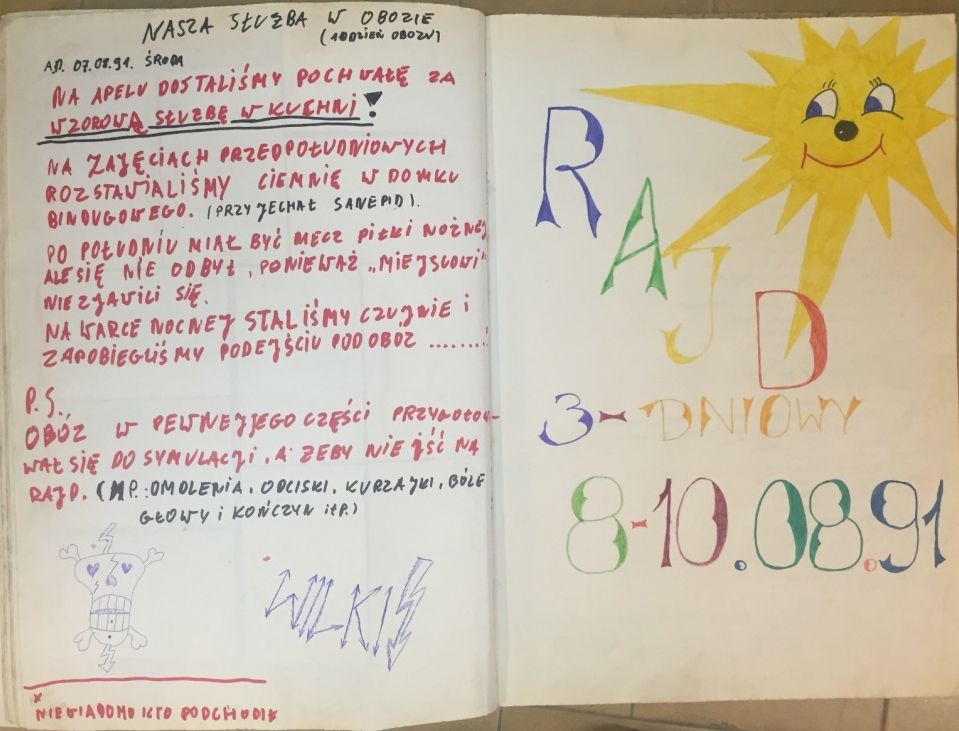 NASZA SŁUŻBA W OBOZIE
(10DZIEŃ OBOZU)
A.D. 07.08.91. ŚRODA
NA APELU DOSTALIŚMY POCHWAŁĘ ZA
WZOROWĄ SŁUŻBĘ W KUCHNI!
NA ZAJĘCIACH PRZEDPOŁUDNIOWYCH
ROZSTAWIALIŚMY CIEMNIĘ W DOMKU
BINDUGOWEGO. (PRZYJECHAŁ SANEPID).
PO POŁUDNIU MIAŁ BYĆ MECZ PIŁKI NOŻNEJ
ALE SIĘ NIE ODBYŁ, PONIEWAŻ „MIEJSCOWI"
NIE ZJAWILI SIĘ.
NA WARCE NOCNEJ STALIŚMY CZUJNIE I
ZAPOBIEGLIŚMY PODEJŚCIU POD OBÓZ ........
P.S.
OBÓZ W PEWNEJ JEGO CZĘŚCI PRZYGOTOW-
WAŁ SIĘ DO SYMULACJI, A ŻEBY NIE IŚĆ NA
RAJD. (NP.: OMDLENIA, ODCISKI, KURZAJKI, BÓLE
GŁOWY I KOŃCZYN ITP.)
WILKI
x
NIEWIADOMO KTO PODCHODIŁ
RAJD
3-DNIOWY
8-10.08.91